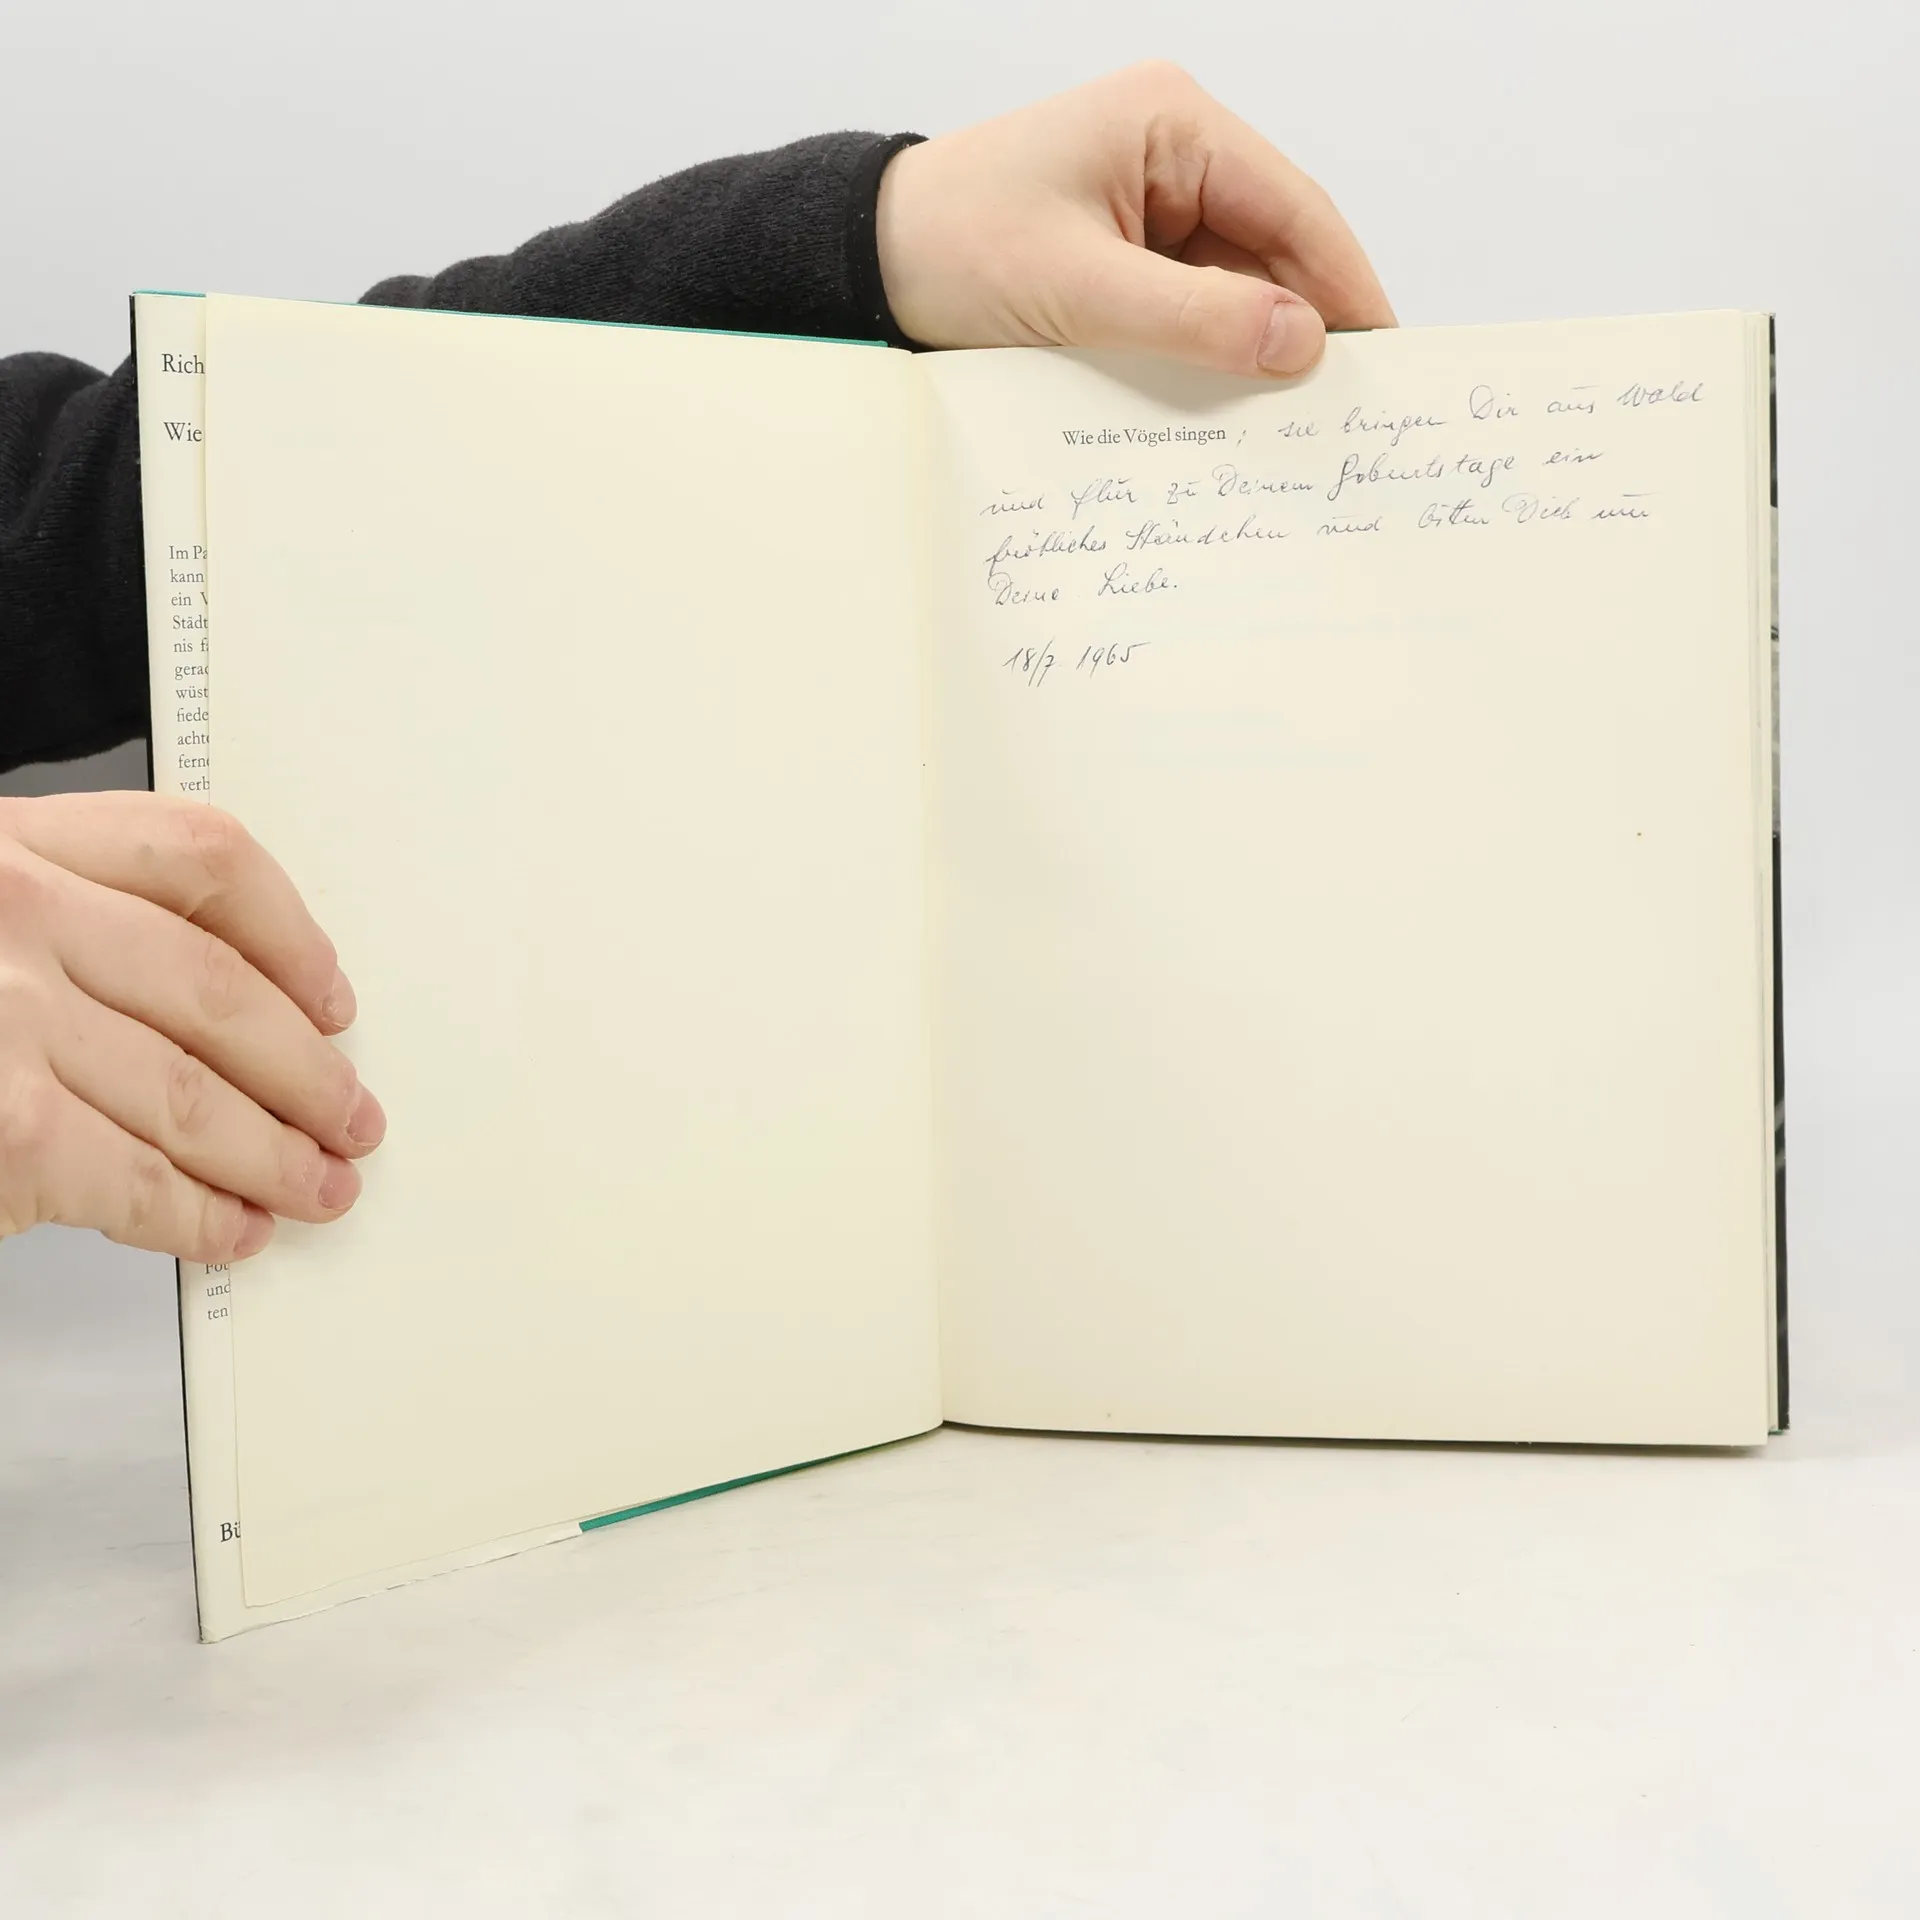 Rich
Wie
Im Pa
kann
ein V
Städt
nis f
gerad
wüst
fiede
achte
ferne
verb
und
ten
Bü
Wie die Vögel singen ; sie bringen Dir aus Wald
und Flur zu Deinem Geburtstage ein
fröhliches Ständchen und bitten Dich um
Deine Liebe.
18/7 1965